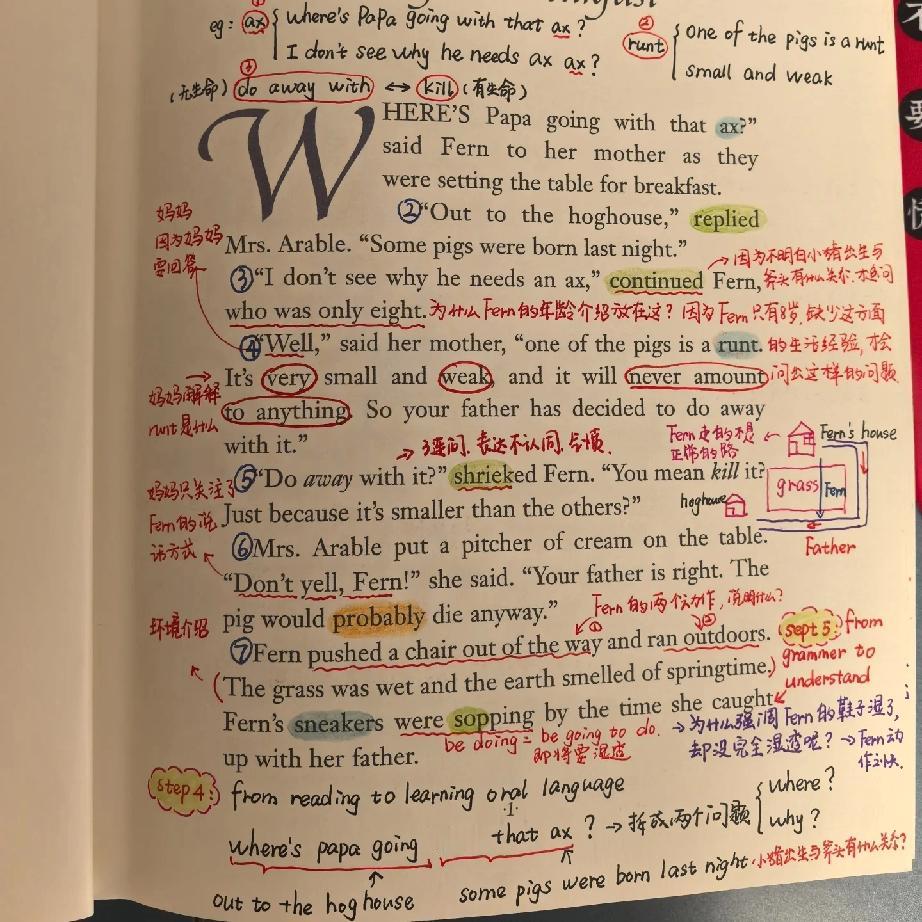 eg: ax where's PaPa going with that ax?
I don't see why he needs ax ax?
② runt One of the pigs is a runt
small and weak
(无生命) do away with ↔ kill (有生命)
WHERE'S Papa going with that ax?"
said Fern to her mother as they
were setting the table for breakfast.
②"Out to the hoghouse," replied
Mrs. Arable. "Some pigs were born last night."
③"I don't see why he needs an ax," continued Fern,
who was only eight.
④"Well," said her mother, "one of the pigs is a runt.
It's very small and weak, and it will never amount
to anything. So your father has decided to do away
with it."
⑤"Do away with it?" shrieked Fern. "You mean kill it?
Just because it's smaller than the others?"
⑥Mrs. Arable put a pitcher of cream on the table.
"Don't yell, Fern!" she said. "Your father is right. The
pig would probably die anyway."
⑦Fern pushed a chair out of the way and ran outdoors.
(The grass was wet and the earth smelled of springtime.)
Fern's sneakers were sopping by the time she caught
up with her father.
妈妈
因为妈妈
要回答
→因为不明白小猪出生与
斧头有什么关系.才追问
为什么Fern的年龄介绍放在这? 因为Fern只有8岁,缺少这方面
的生活经验,才会
问出这样的问题
妈妈解释
runt是什么
→3连问.表达不认同,气愤.
Fern走的不是
正常的路
Fern's house
grass
Fern
hoghouse
Father
妈妈只关注了
Fern的说
话方式
Fern的两个动作,说明什么?
① ②
环境介绍
sept 5: from
grammer to
understand
be doing = be going to do.
即将要湿透
→为什么强调Fern的鞋子湿了,
却没完全湿透呢? →Fern动
作之快.
step 4: from reading to learning oral language
where's papa going that ax? →拆成两个问题 where?
why?
out to the hoghouse
some pigs were born last night.小猪出生与斧头有什么关系?